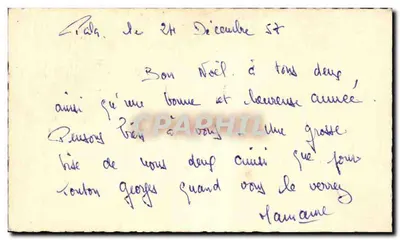 le 24 Décembre 57
Bon Noël à tous deux,
ainsi qu'une bonne et heureuse année.
Pensons bien à vous. Une grosse
bise de nous deux ainsi que pour
tonton Georges quand vous le verrez
CPAPHIL